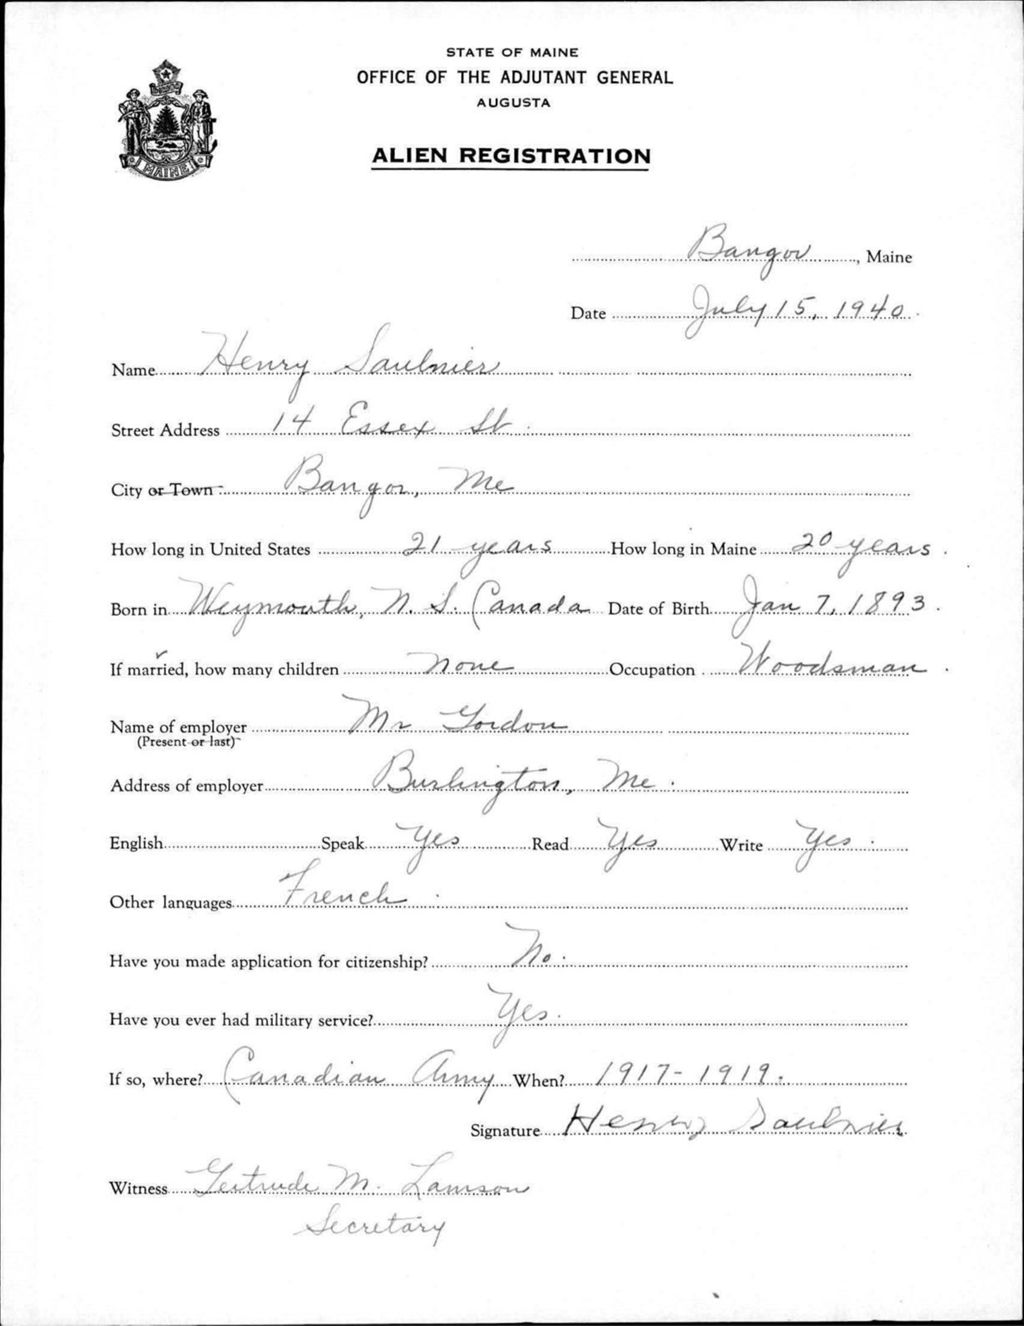 STATE OF MAINE
OFFICE OF THE ADJUTANT GENERAL
AUGUSTA
ALIEN REGISTRATION
MAINE
Bangor, Maine
Date July 15, 1940.
Name Henry Saulnier
Street Address 14 Essex St.
City or Town Bangor, Me
How long in United States 21 years How long in Maine 20 years.
Born in Weymouth, N. S. Canada Date of Birth Jan 7, 1893.
If married, how many children None Occupation Woodsman.
Name of employer Mr Gordon
(Present or last)
Address of employer Burlington, Me.
English Speak Yes Read Yes Write Yes.
Other languages French.
Have you made application for citizenship? No.
Have you ever had military service? Yes.
If so, where? Canadian Army When? 1917-1919.
Signature Henry Saulnier
Witness Gertrude M. Lamson
Secretary